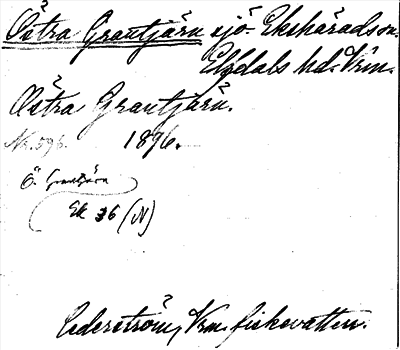 Östra Grantjärn sjö Ekshäradson.
Elfdals hd. Vrm.
Östra Grantjärn.
Nr. 596. 1896.
Ö. Grantjärn
Ek 36 (N)
Cederström, Vrm. fiskevatten.